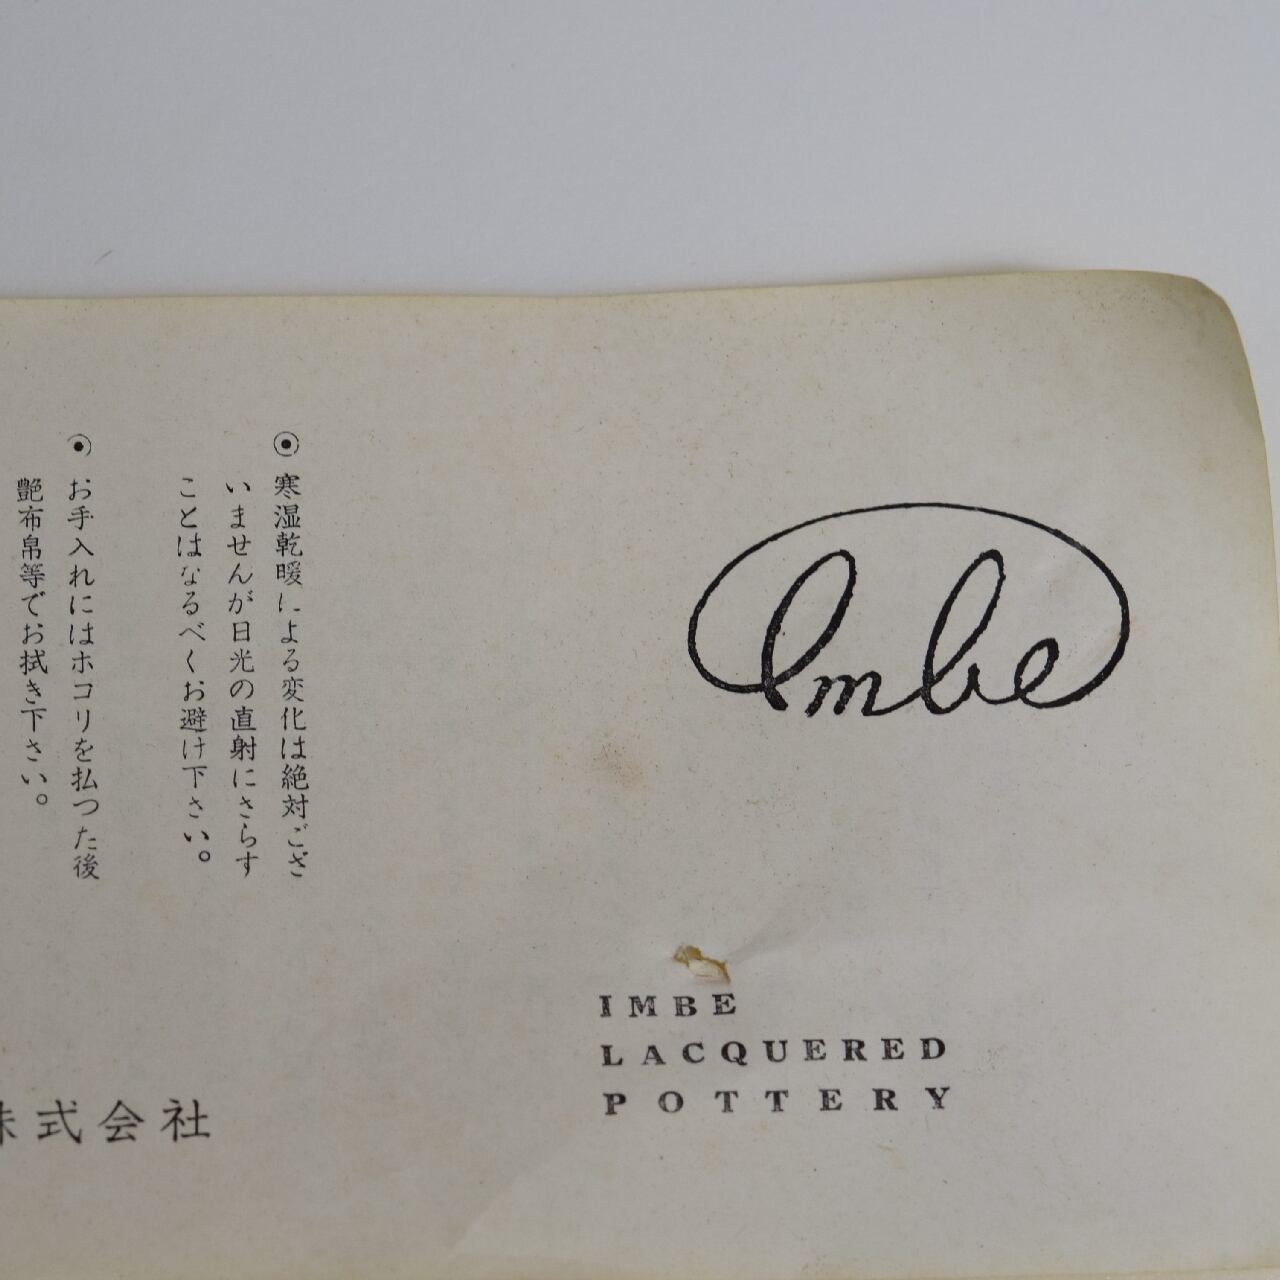 Imbe
IMBE
LACQUERED
POTTERY
◉ 寒湿乾暖による変化は絶対ござ
いませんが日光の直射にさらす
ことはなるべくお避け下さい。
◉ お手入れにはホコリを払つた後
艶布帛等でお拭き下さい。
株式会社